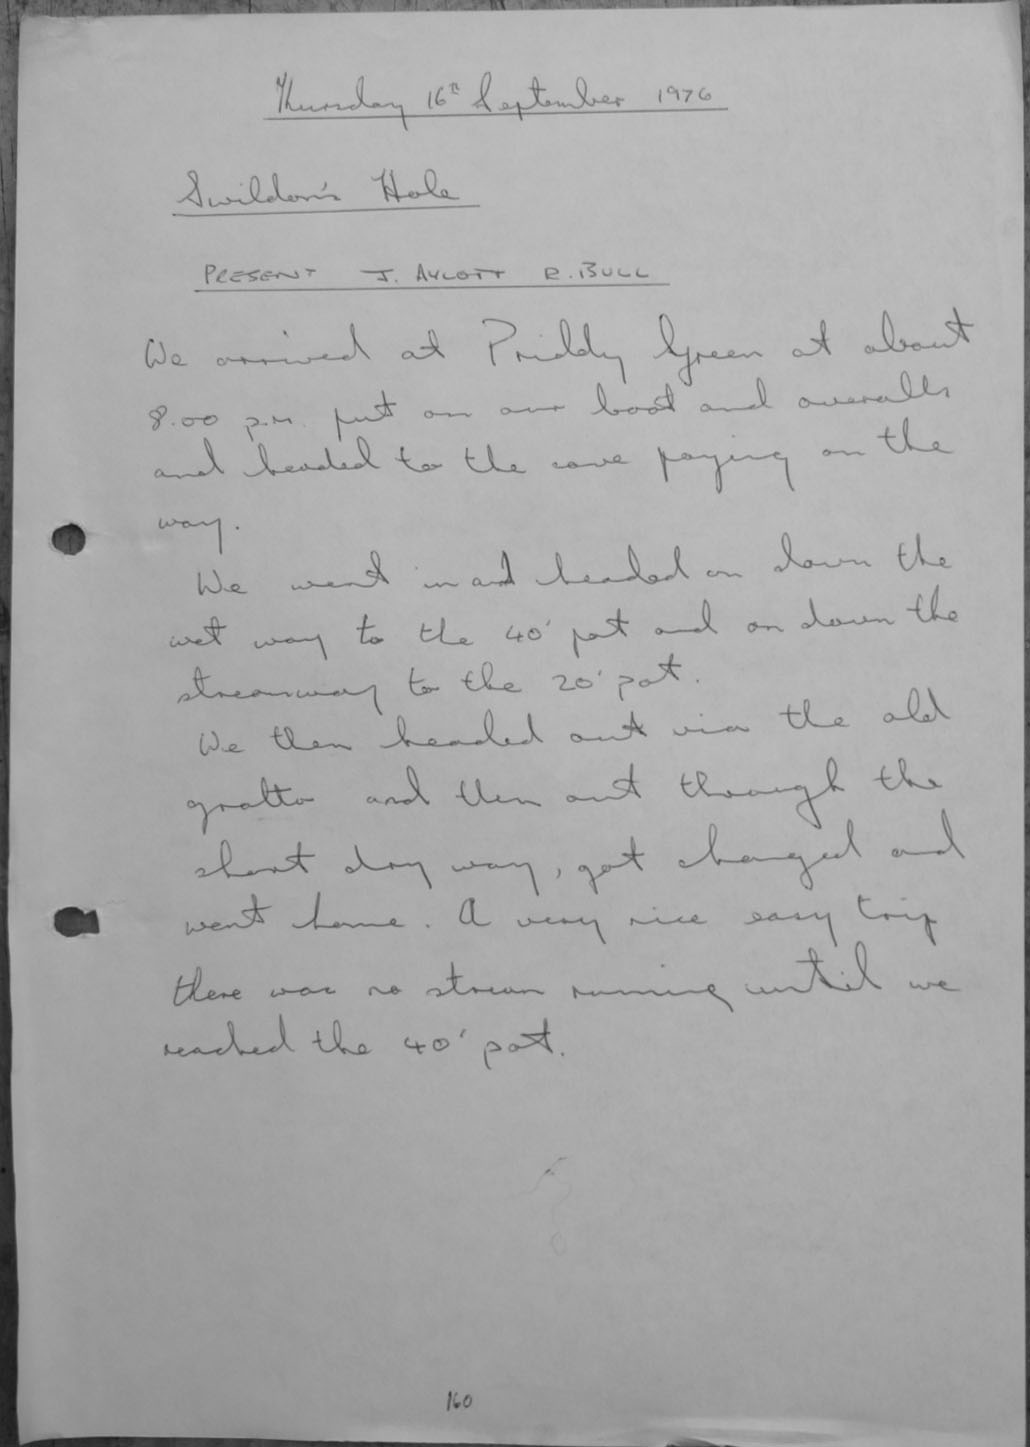 Thursday 16th September 1976
Swildon's Hole
PRESENT J. AYLOTT R. BULL
We arrived at Priddy Green at about
8.00 p.m. put on our boot and overalls
and headed to the cave paying on the
way.
We went in and headed on down the
wet way to the 40' pot and on down the
streamway to the 20' pot.
We then headed out via the old
grotto and then out through the
short dry way, got changed and
went home. A very nice easy trip
there was no stream running until we
reached the 40' pot.
160